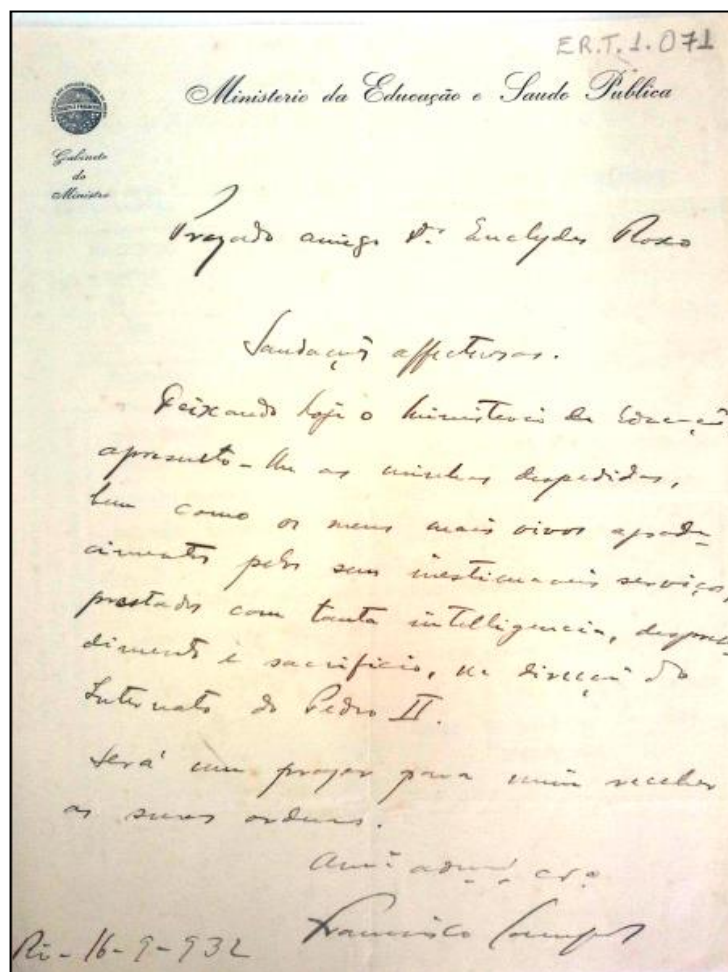 ER.T.1.071
Ministerio da Educação e Saude Publica
Gabinete
do
Ministro
Prezado amigo Dr. Euclydes Roxo
Saudações affectuosas.
Deixando hoje o Ministerio da Educação
apresento-lhe as minhas despedidas,
bem como os meus mais vivos agrade-
cimentos pelos seus inestimaveis serviços,
prestados com tanta intelligencia, despren-
dimento e sacrificio, na direcção do
Internato do Pedro II.
Será um prazer para mim receber
as suas ordens.
Amº admº crº
Francisco Campos
Rio-16-9-932